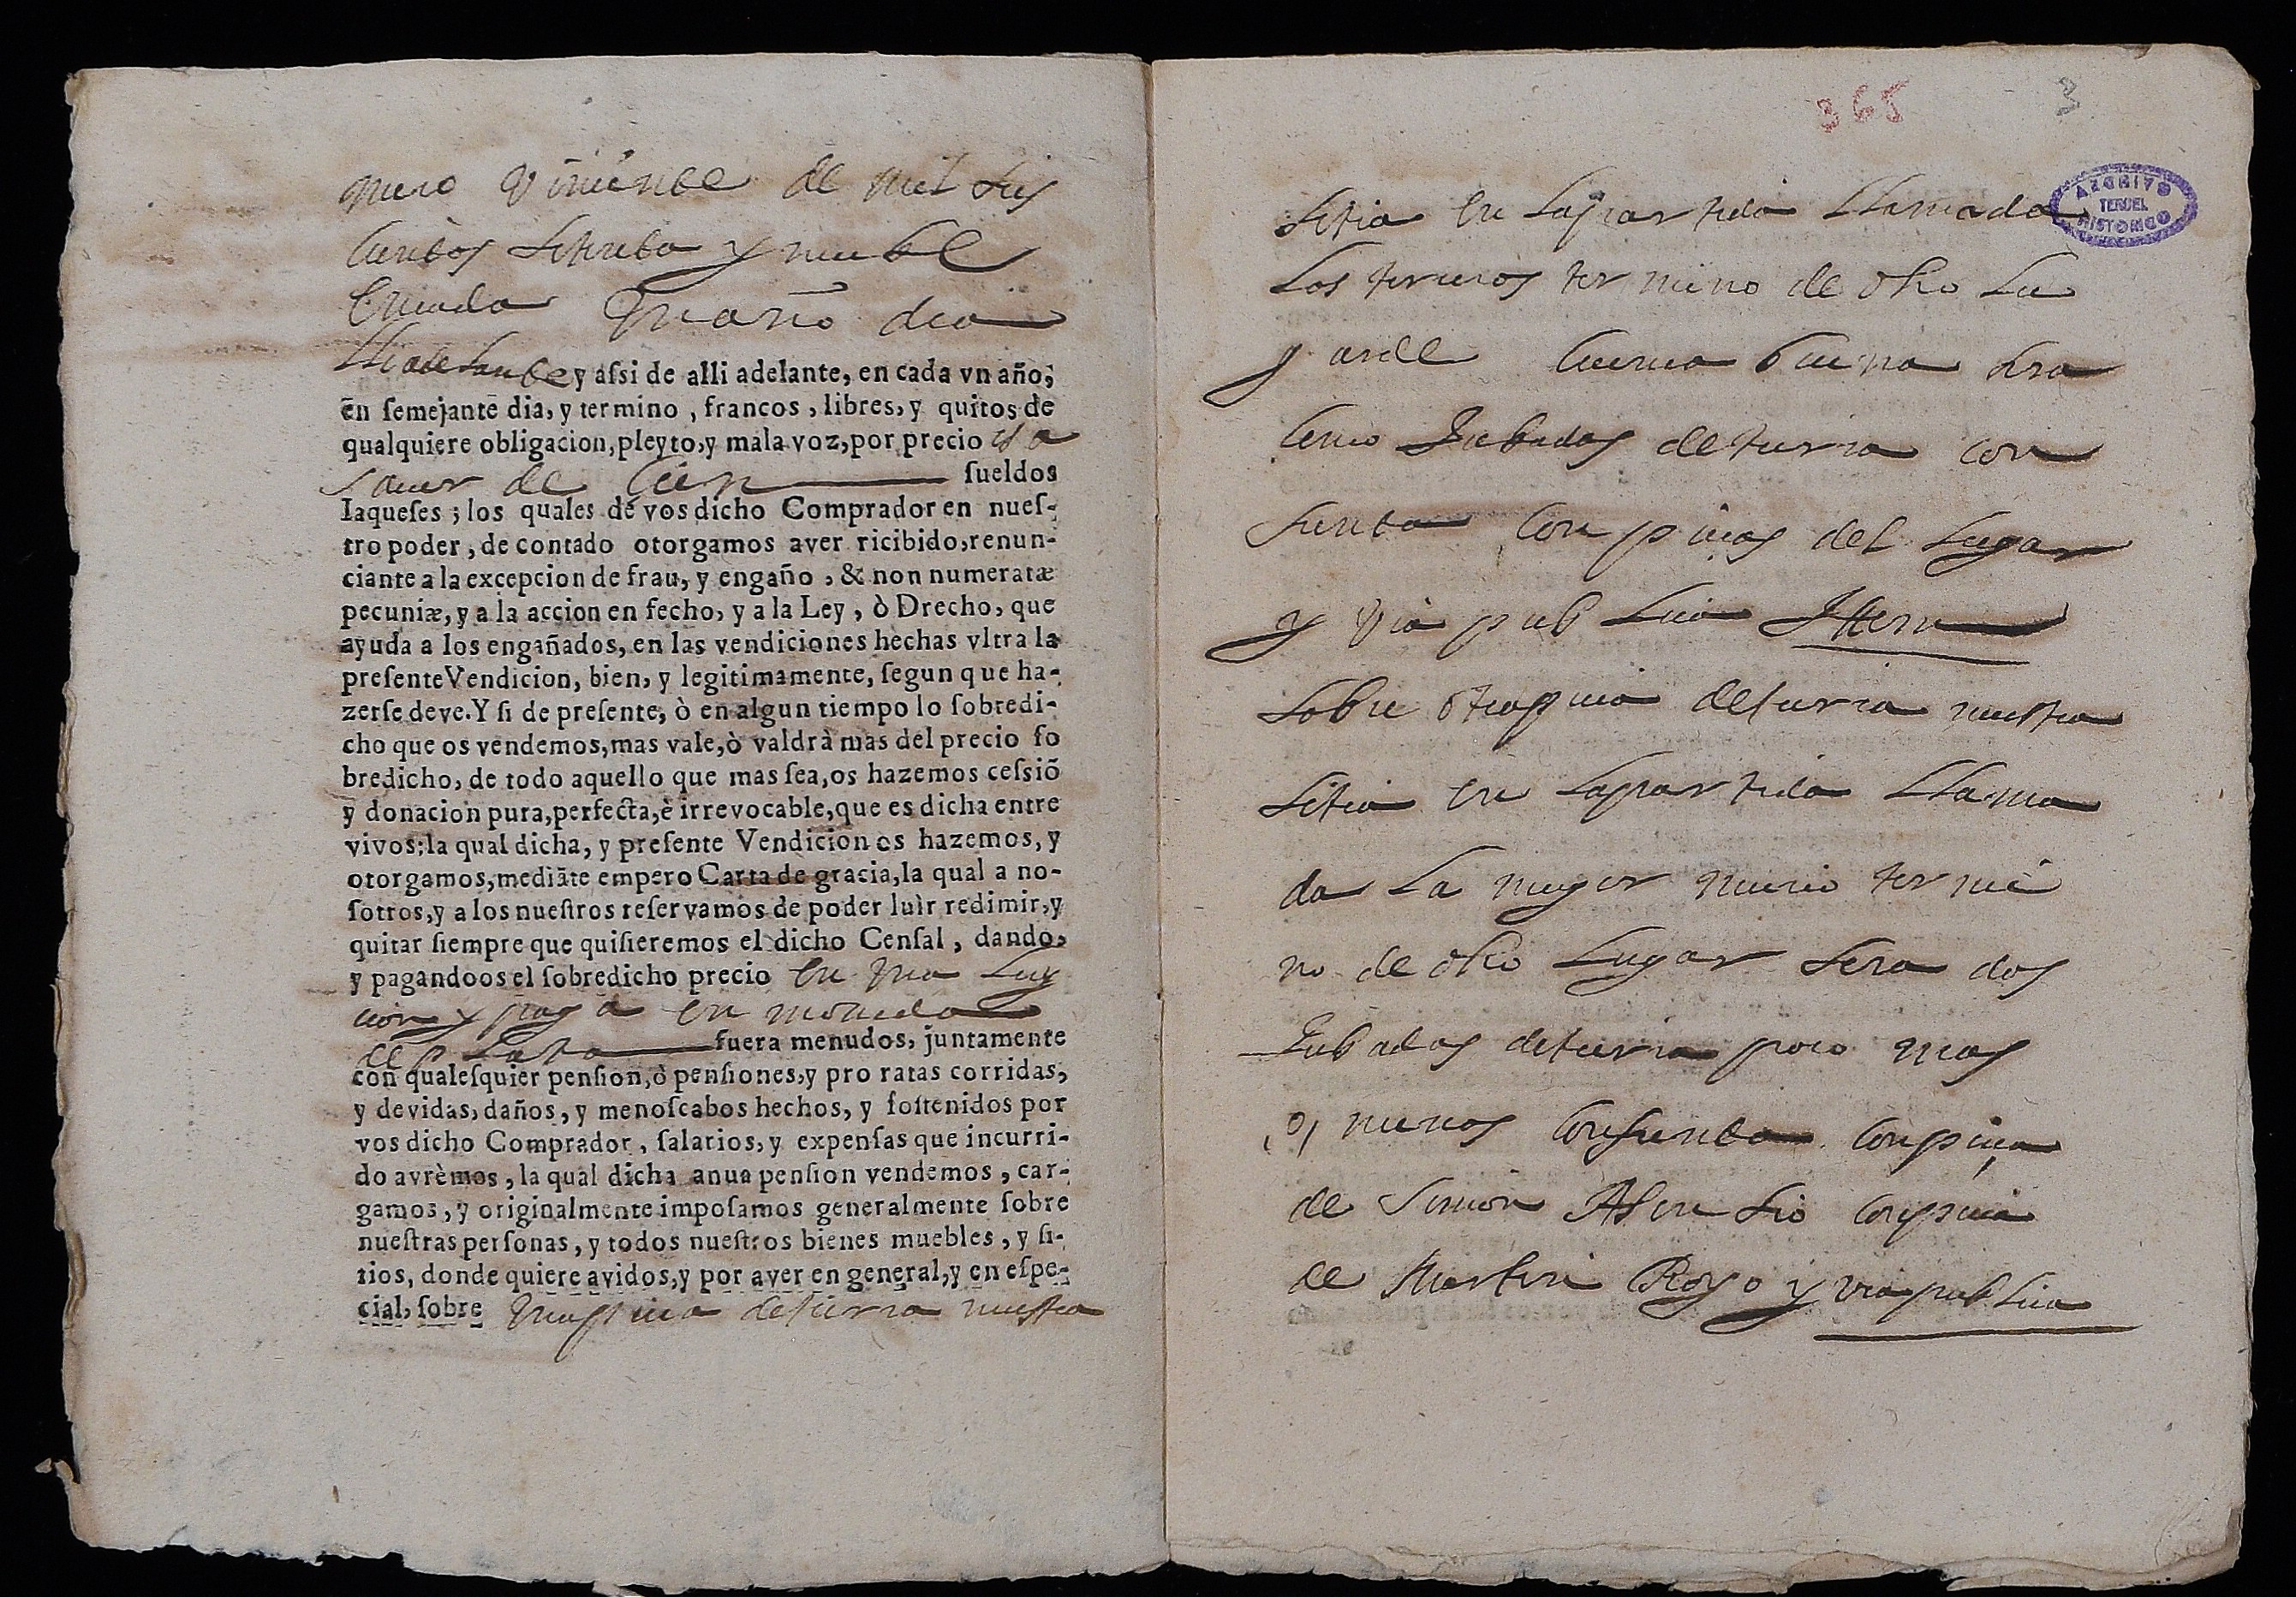 nero viniente de mil seis
cientos setenta y nuebe
en cada un año dia
y aſsi de alli adelante, en cada vn año;
en ſemejante dia, y termino, francos, libres, y quitos de
qualquiere obligacion, pleyto, y mala voz, por precio es a
sauer de Cien ſueldos
Iaqueſes; los quales de vos dicho Comprador en nueſ-
tro poder, de contado otorgamos aver ricibido, renun-
ciante a la excepcion de frau, y engaño, & non numeratæ
pecuniæ, y a la accion en fecho, y a la Ley, ò Drecho, que
ayuda a los engañados, en las vendiciones hechas vltra la
preſente Vendicion, bien, y legitimamente, ſegun que ha-
zerſe deve. Y ſi de preſente, ò en algun tiempo lo ſobredi-
cho que os vendemos, mas vale, ò valdrà mas del precio ſo
bredicho, de todo aquello que mas ſea, os hazemos ceſsiõ
y donacion pura, perfecta, è irrevocable, que es dicha entre
vivos; la qual dicha, y preſente Vendicion os hazemos, y
otorgamos, mediãte empero Carta de gracia, la qual a no-
ſotros, y a los nueſtros reſervamos de poder luìr redimir, y
quitar ſiempre que quiſieremos el dicho Cenſal, dando,
y pagandoos el ſobredicho precio en una luy
cion y paga en moneda
de plata fuera menudos, juntamente
con qualeſquier penſion, ò penſiones, y pro ratas corridas,
y devidas, daños, y menoſcabos hechos, y ſoſtenidos por
vos dicho Comprador, ſalarios, y expenſas que incurri-
do avrèmos, la qual dicha anua penſion vendemos, car-
gamos, y originalmente impoſamos generalmente ſobre
nueſtras perſonas, y todos nueſtros bienes muebles, y ſi-
tios, donde quiere avidos, y por aver en general, y en eſpe-
cial, ſobre una pieca de tierra nuestra
365 3
ARCHIVO
TERUEL
HISTORICO
sitia en la partida llamada
los termino de dho Lu
gar de Cuerna buena sera
cinco Jubadas de tierra con
frenta con pieças del Lugar
y via publica Item
sobre otra pieca de tierra nuestra
sitia en la partida llama
da la muger termi
no de dho Lugar sera dos
Jubadas de tierra poco mas
o menos confrenta con pieça
de Simon Asensio con pieca
de Martin Royo y via publica